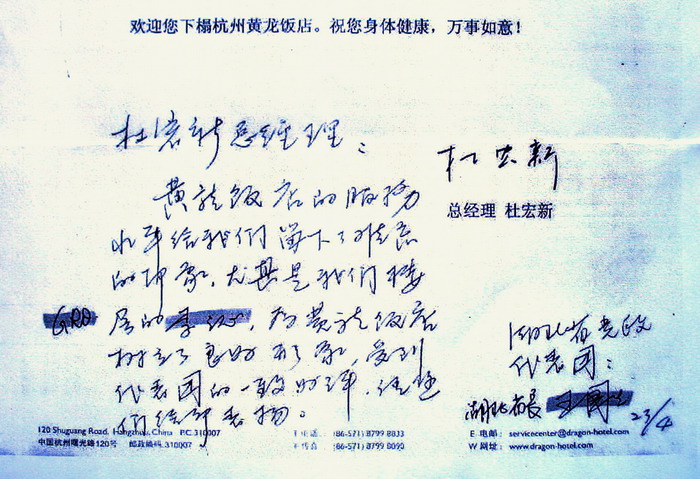 欢迎您下榻杭州黄龙饭店。祝您身体健康，万事如意！
杜宏新总经理：
黄龙饭店的服务
水平给我们留下了难忘
的印象，尤其是我们楼
层的
GRO
，为黄龙饭店
树立了良好形象，受到
代表团的一致好评，
们给予表扬。
杜宏新
总经理 杜宏新
湖北省党政
代表团：
湖北省长
23/4
120 Shuguang Road, Hangzhou, China P.C.310007
中国杭州曙光路120号 邮政编码 310007
T 电话： (86-571) 8799 8833
F 传真： (86-571) 8799 8090
E 电邮： servicecenter@dragon-hotel.com
W 网址： www.dragon-hotel.com